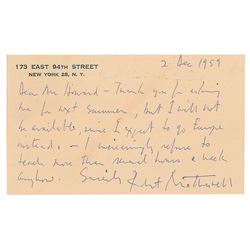 173 EAST 94TH STREET
NEW YORK 28, N. Y.
2 Dec 1959
Dear Mr Howard - Thank you for asking
me for next summer, but I will not
be available, since I expect to go Europe
instead. - I increasingly refuse to
teach more than several hours a week
anyhow. Sincerely Robert Motherwell